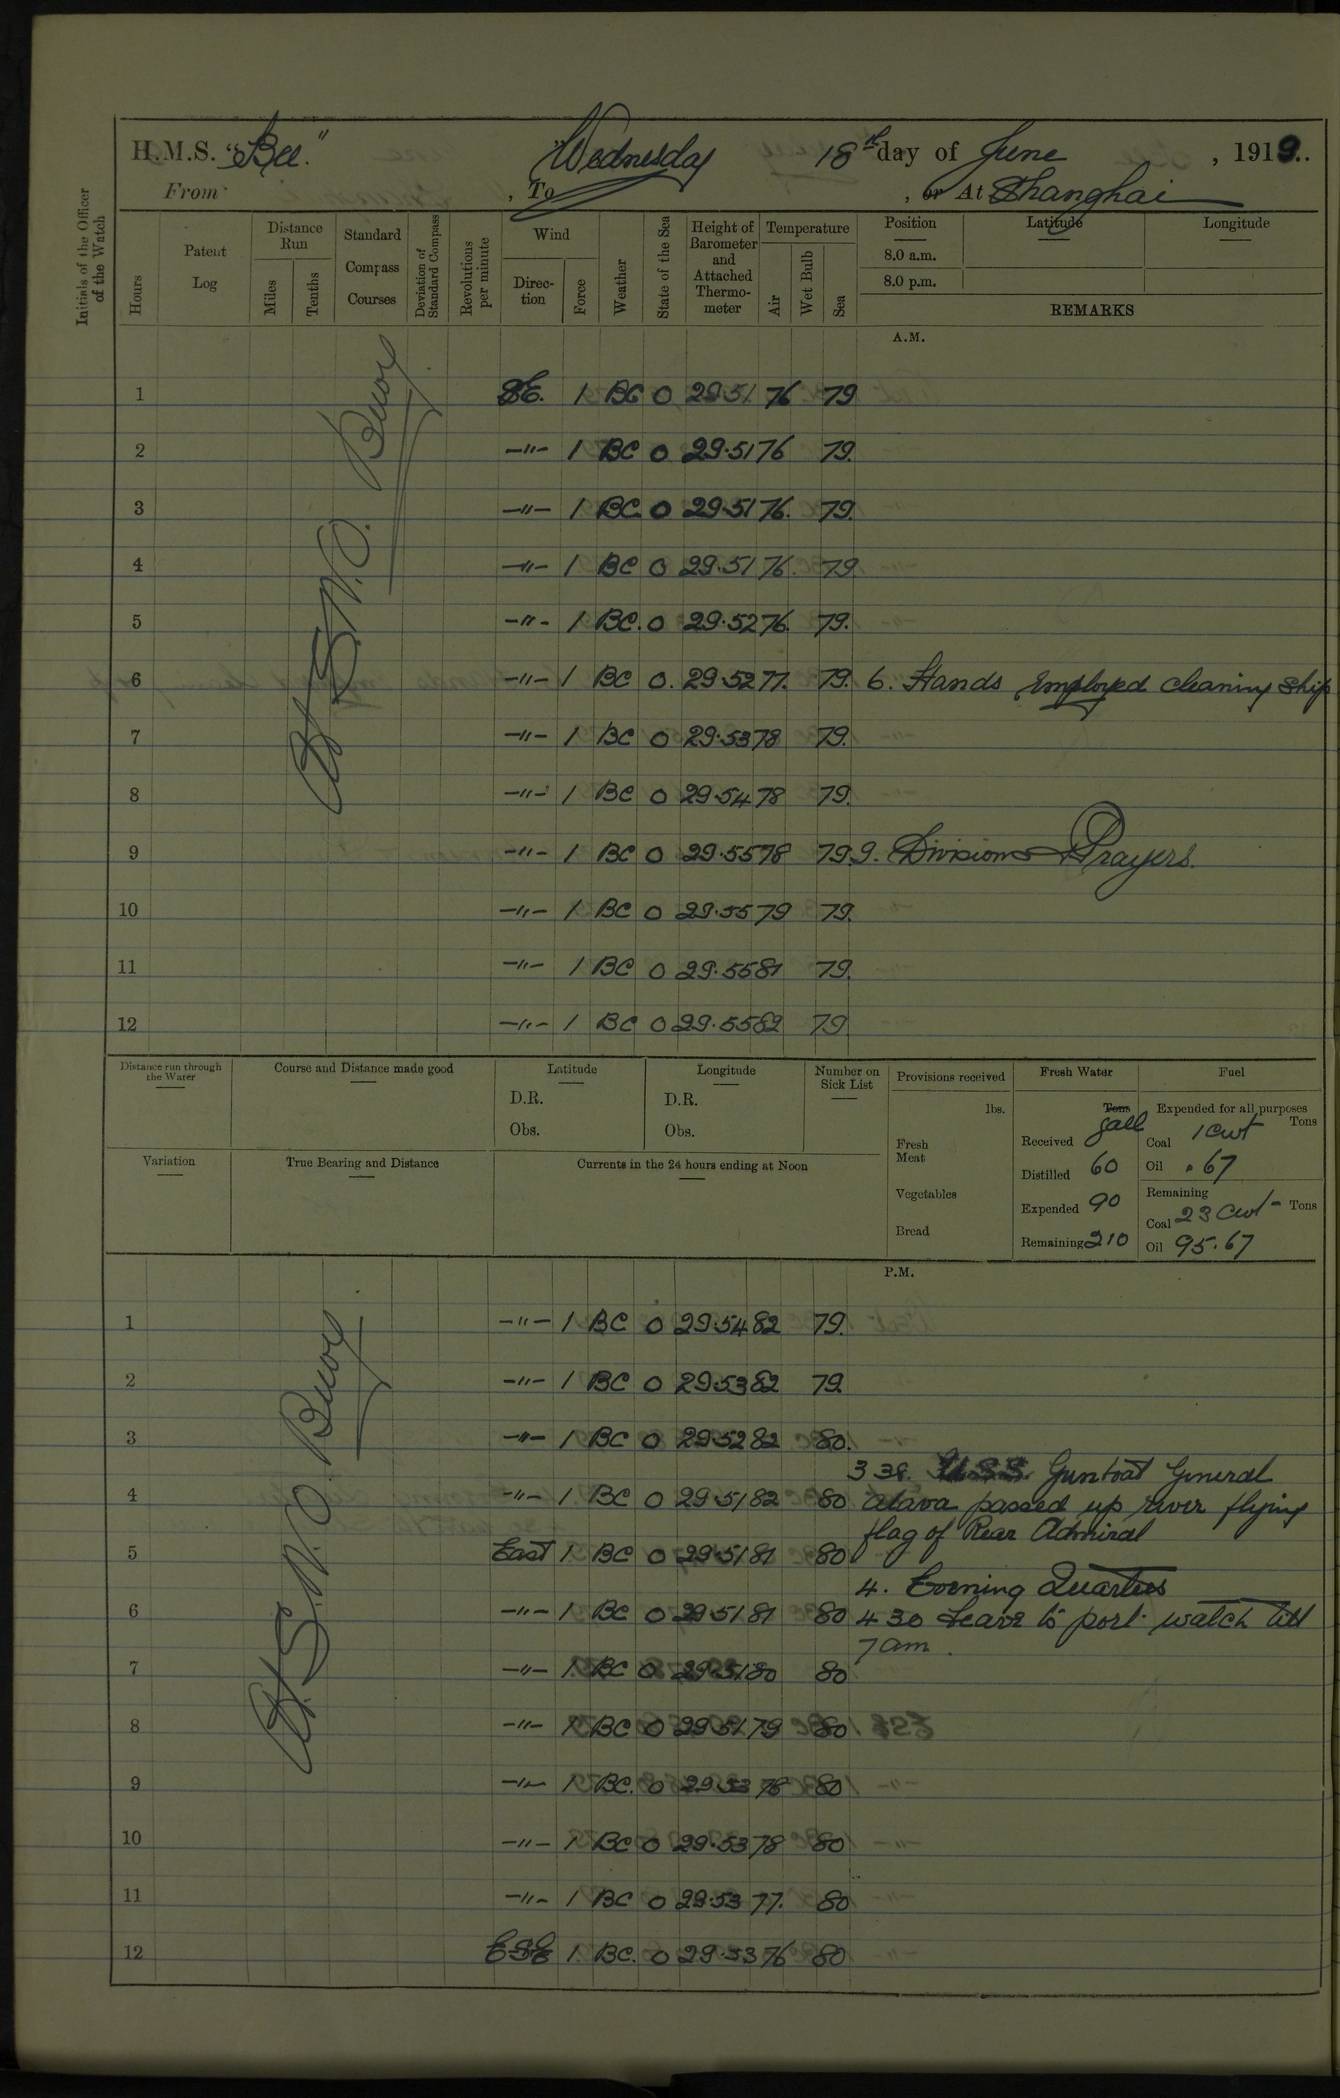 H.M.S. "Bee." Wednesday 18th day of June, 1919.
From , To , or At Shanghai
Initials of the Officer of the Watch
Hours
Patent Log
Distance Run
Miles
Tenths
Standard Compass Courses
Deviation of Standard Compass
Revolutions per minute
Wind
Direction
Force
Weather
State of the Sea
Height of Barometer and Attached Thermometer
Temperature
Air
Wet Bulb
Sea
Position
Latitude
Longitude
8.0 a.m.
8.0 p.m.
REMARKS
A.M.
At S.N.O. Buoy
1 SE. 1 BC 0 29.51 76 79
2 -"- 1 BC 0 29.51 76 79.
3 -"- 1 BC 0 29.51 76. 79.
4 -"- 1 BC 0 29.51 76. 79
5 -"- 1 BC. 0 29.52 76. 79.
6 -"- 1 BC 0. 29.52 77. 79. 6. Hands employed cleaning ship
7 -"- 1 BC 0 29.53 78 79.
8 -"- 1 BC 0 29.54 78 79.
9 -"- 1 BC 0 29.55 78 79 9. Divisions Prayers.
10 -"- 1 BC 0 29.55 79 79.
11 -"- 1 BC 0 29.55 81 79.
12 -"- 1 BC 0 29.55 82 79
Distance run through the Water
Course and Distance made good
Latitude
D.R.
Obs.
Longitude
D.R.
Obs.
Number on Sick List
Variation
True Bearing and Distance
Currents in the 24 hours ending at Noon
Provisions received
lbs.
Fresh Meat
Vegetables
Bread
Fresh Water
Tons
gall
Received
Distilled 60
Expended 90
Remaining 210
Fuel
Expended for all purposes
Tons
Coal 1 cwt
Oil .67
Remaining
Coal 23 cwt - Tons
Oil 95.67
P.M.
At S.N.O. Buoy
1 -"- 1 BC 0 29.54 82 79.
2 -"- 1 BC 0 29.53 82 79.
3 -"- 1 BC 0 29.52 82 80.
3 38. U.S.S. Gunboat General
4 -"- 1. BC 0 29.51 82 80 Alava passed up river flying
flag of Rear Admiral
5 East 1. BC 0 29.51 81 80
4. Evening Quarters
6 -"- 1 BC 0 29.51 81 80 4 30 Leave to port watch till
7 am.
7 -"- 1. BC 0 29.51 80 80
8 -"- 1 BC 0 29.51 79 80
9 -"- 1 BC. 0 29.53 78 80
10 -"- 1 BC 0 29.53 78 80
11 -"- 1 BC 0 29.53 77. 80
12 ESE 1. BC. 0 29.53 76 80